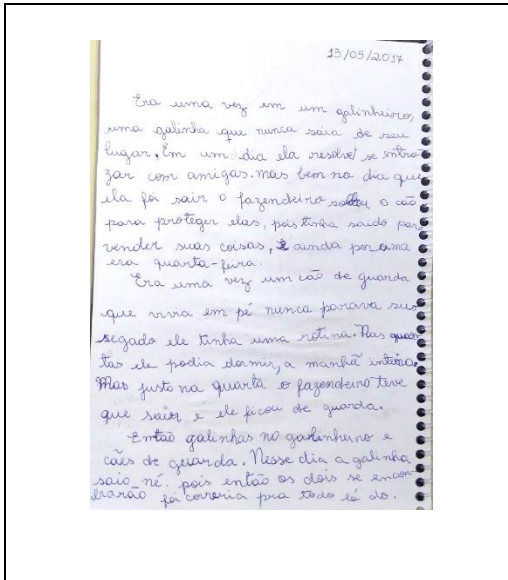 13/05/2017
Era uma vez em um galinheiro,
uma galinha que nunca saia de seu
lugar, Em um dia ela resolvel se entro
zar com amigas. mas bem no dia que
ela foi sair o fazendeiro soltou o cão
para proteger elas, pois tinha saido par
vender suas coisas, E ainda por cima
era quarta-feira.
Era uma vez um cão de guarda
que vivia em pé nunca parava sus
segado ele tinha uma rotina. Nas quar
tas ele podia dormir, a manhã inteira.
Mas justo na quarta o fazendeiro teve
que sair e ele ficou de guarda.
Então galinhas no galinheiro e
cães de guarda. Nesse dia a galinha
saio né. pois então os dois se encon
trarão foi correria pra todo lá do.